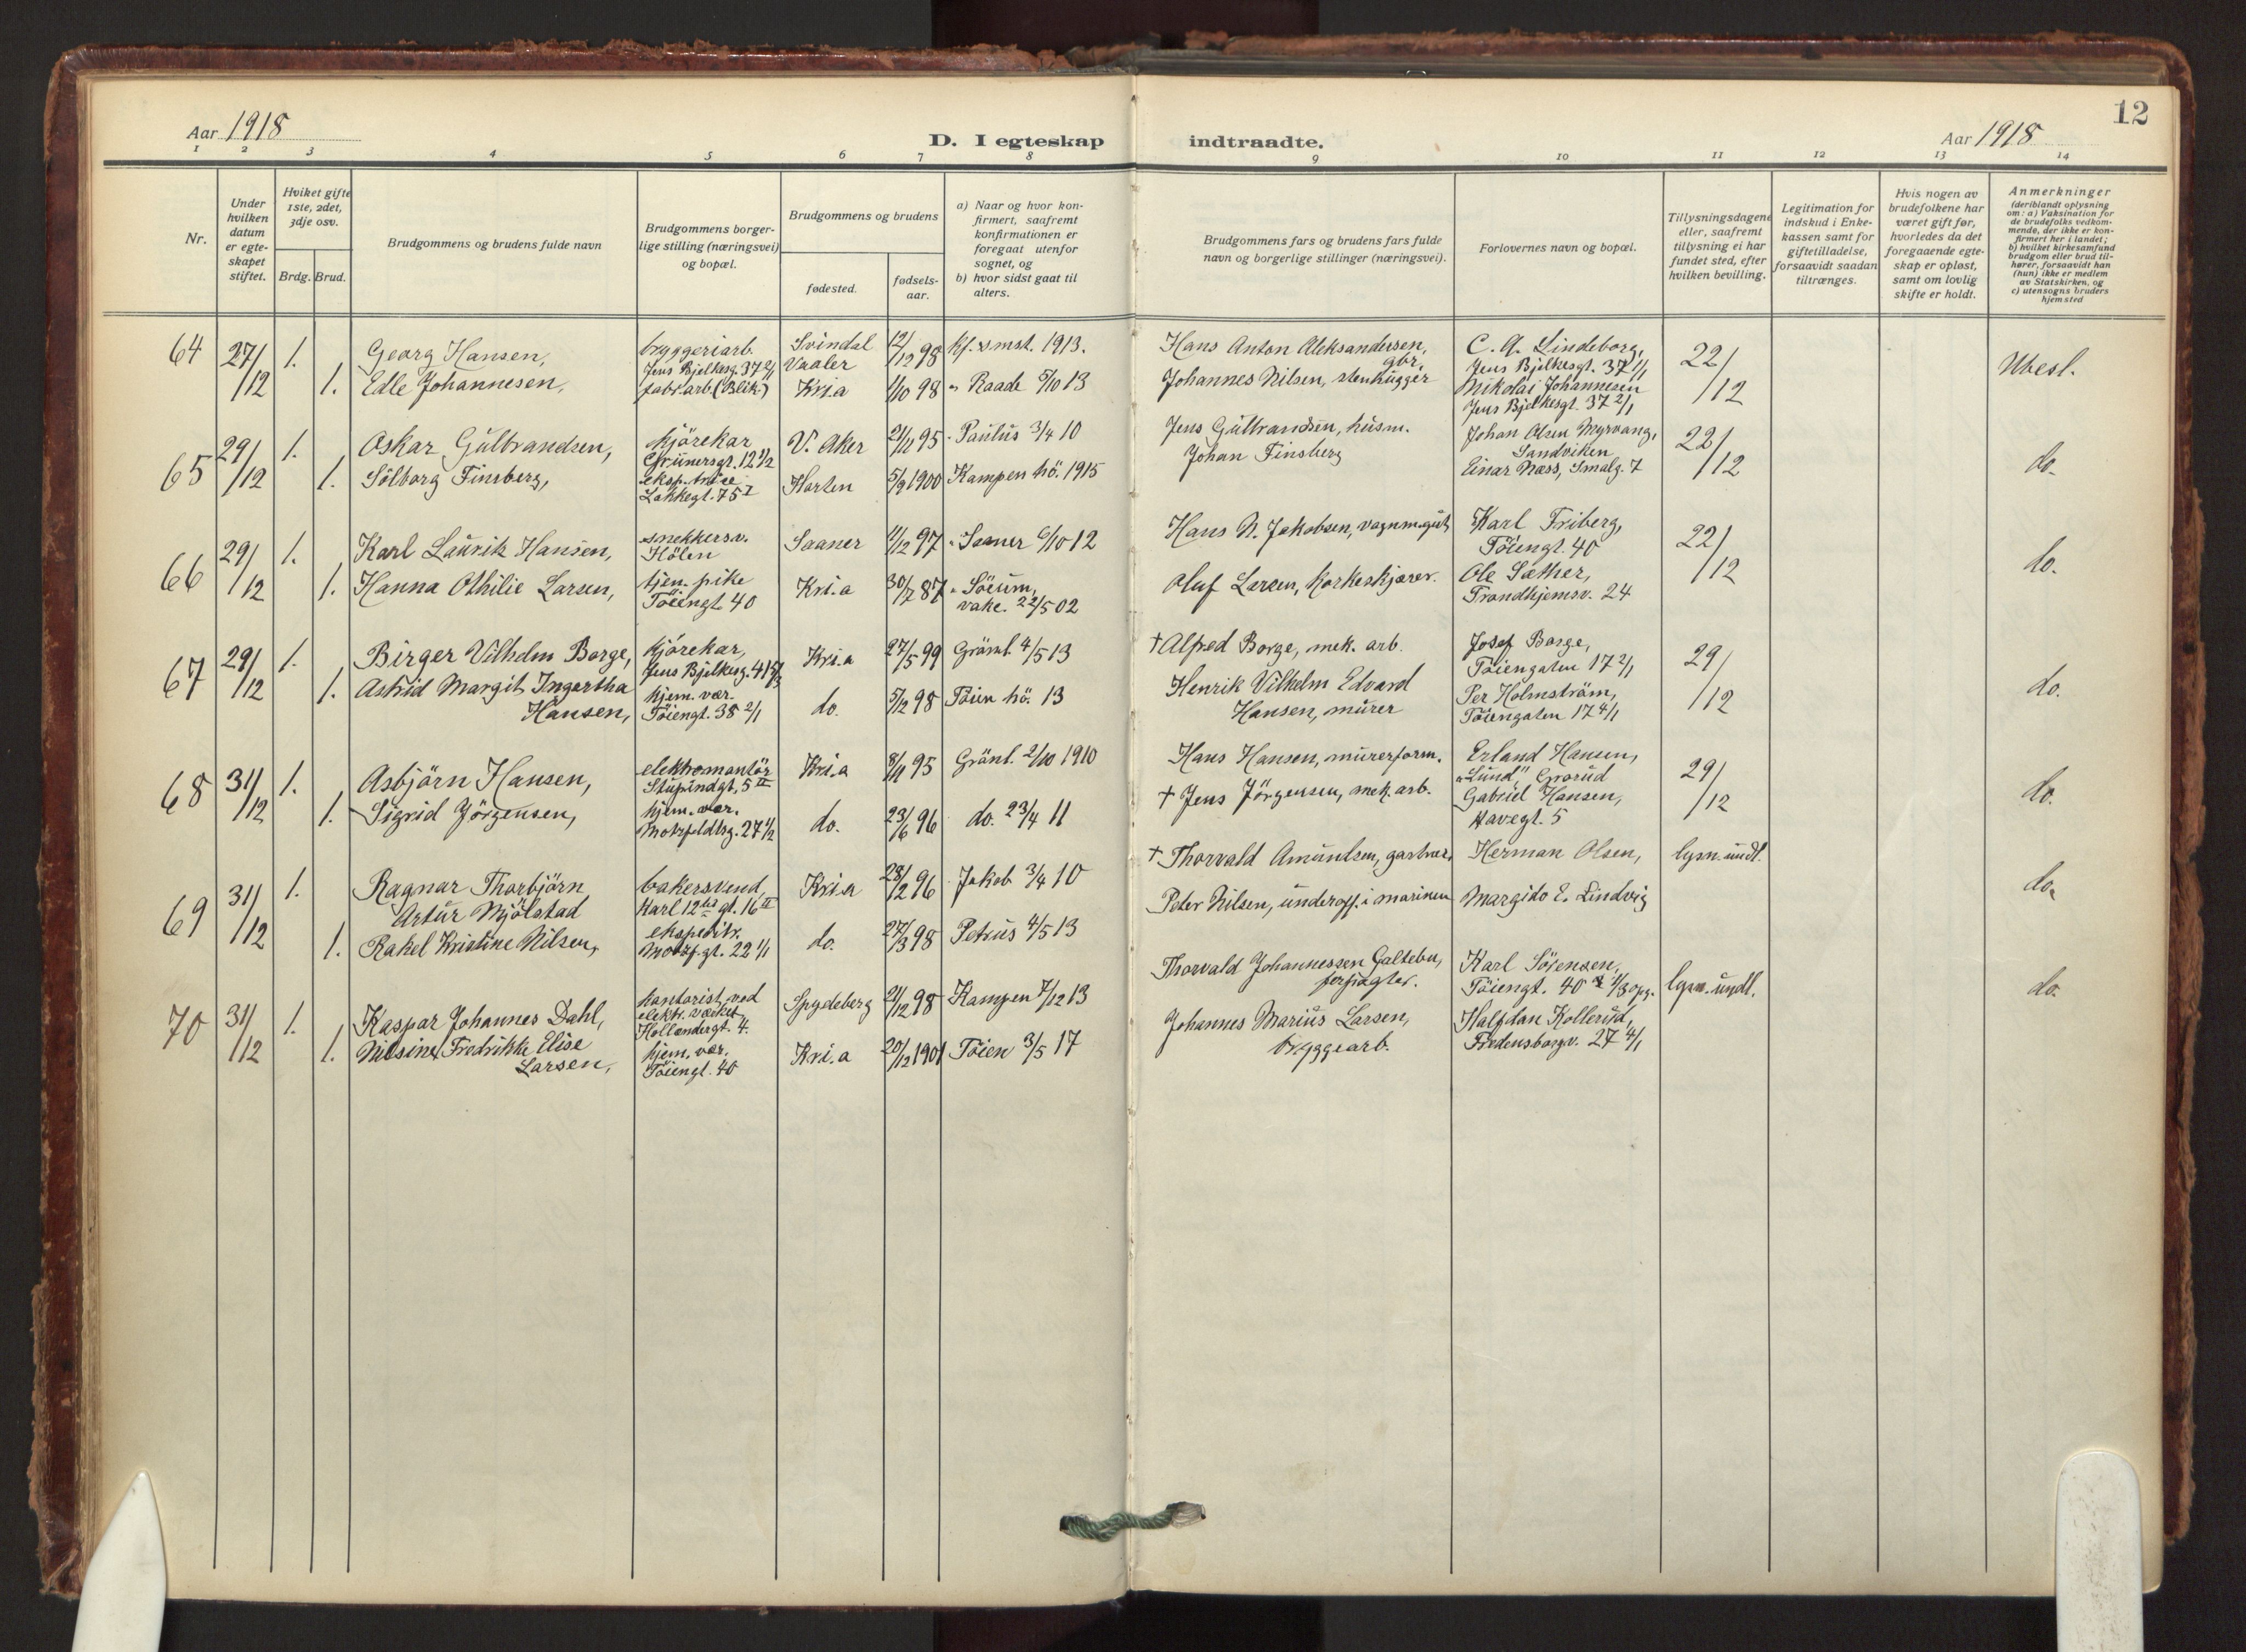 12
Aar 1918
D. I egteskap indtraadte.
Aar 1918
1 2 3 4 5 6 7 8 9 10 11 12 13 14
Nr.
Under
hvilken
datum
er egte-
skapet
stiftet.
Hviket gifte
1ste, 2det,
3dje osv.
Brdg. Brud.
Brudgommens og brudens fulde navn
Brudgommens borger-
lige stilling (næringsvei)
og bopæl.
Brudgommens og brudens
fødested.
fødsels-
aar.
a) Naar og hvor kon-
firmert, saafremt
konfirmationen er
foregaat utenfor
sognet, og
b) hvor sidst gaat til
alters.
Brudgommens fars og brudens fars fulde
navn og borgerlige stillinger (næringsvei).
Forlovernes navn og bopæl.
Tillysningsdagene
eller, saafremt
tillysning ei har
fundet sted, efter
hvilken bevilling.
Legitimation for
indskud i Enke-
kassen samt for
giftetilladelse,
forsaavidt saadan
tiltrænges.
Hvis nogen av
brudefolkene har
været gift før,
hvorledes da det
foregaaende egte-
skap er opløst,
samt om lovlig
skifte er holdt.
Anmerkninger
(deriblandt oplysning
om: a) Vaksination for
de brudefolks vedkom-
mende, der ikke er kon-
firmert her i landet;
b) hvilket kirkesamfund
brudgom eller brud til-
hører, forsaavidt han
(hun) ikke er medlem
av Statskirken, og
c) utensogns bruders
hjemsted
64
27/12
1.
1.
Georg Hansen,
Edle Johannesen,
bryggeriarb.
Jens Bjelkesg. 37 2/1
fabr.arb. (Blik.)
Svindal
Vaaler
Kri.a
12/12 98
1/10 98
kf. 1913.
" Raade 5/10 13
Hans Anton Aleksandersen,
gbr.
Johannes Nilsen, stenhugger
C. A. Lindeborg,
Jens Bjelkesgt. 37 1/1
Nikolai Johannesen
Jens Bjelkesgt. 37 2/1
22/12
Ubesl.
65
29/12
1.
1.
Oskar Gulbrandsen,
Sölborg Finsberg,
kjörekar
Grünersgt. 12 1/2
Lakkegt. 75 I
V. Aker
Horten
21/11 95
5/9 1900
" Paulus 3/4 10
Kampen hö. 1915
Jens Gulbrandsen, husm.
Johan Finsberg
Johan Olsen Myrvang,
Sandviken
Einar Næss, Smalg. 7
22/12
do.
66
29/12
1.
1.
Karl Lauritz Hansen,
Hanna Othilie Larsen,
snekkersv.
Hölen
tjen. pike
Töiengt. 40
Saaner
Kri.a
11/12 97
30/7 87
" Saaner 6/10 12
" Söium,
vake. 22/5 02
Hans N. Jakobsen, vognm.gut
Oluf Larsen, korkeskjærer.
Karl Friberg,
Töiengt. 40
Ole Sæther,
Trondhjemsv. 24
22/12
do.
67
29/12
1.
1.
Birger Vilhelm Borge,
Astrid Margit Ingertha
Hansen,
kjörekar,
Jens Bjelkesg. 41
hjem. vær.
Töiengt. 38 2/1
Kri.a
do.
27/5 99
5/12 98
Grönl. 4/5 13
Töien hö. 13
† Alfred Borge, mek. arb.
Henrik Vilhelm Edvard
Hansen, murer
Josef Borge,
Töiengaten 17 2/1
Per Holmström,
Töiengaten 17 4/1
29/12
do.
68
31/12
1.
1.
Asbjörn Hansen,
Sigrid Jörgensen,
elektromontör
Stupindgt. 5 II
hjem. vær.
Motzfeldtsg. 27 1/2
Kri.a
do.
8/11 95
23/6 96
Grönl. 2/10 1910
do. 23/4 11
Hans Hansen, murerform.
† Jens Jörgensen, mek. arb.
Erland Hansen,
"Lund", Grorud
Gabriel Hansen,
Havegt. 5
29/12
do.
69
31/12
1.
1.
Ragnar Thorbjörn
Artur Mjölstad
Rakel Kristine Nilsen,
bakersvend,
Karl 12tes gt. 16 II
ekspeditr.
Motzf.gt. 22 1/1
Kri.a
do.
28/2 96
27/3 98
Jakob 3/4 10
Petrus 4/5 13
† Thorvald Amundsen, gartner,
Peter Nilsen, underoff. i marinen
Herman Olsen,
Margido E. Lindvig
lysn. undl.
do.
70
31/12
1.
1.
Kaspar Johannes Dahl,
Nilsine Fredrikke Elise
Larsen,
kontorist ved
elektr. værket,
Hollændergt. 4.
hjem. vær.
Töiengt. 40
Spydeberg
Kri.a
21/12 98
20/12 1901
Kampen 7/12 13
Töien 3/5 17
Thorvald Johannessen Galtebu,
forpagter.
Johannes Marius Larsen,
bryggearb.
Karl Sörensen,
Töiengt. 40 opg.
Halfdan Kollerud,
Fredensborgv. 27 4/1
lysn. undl.
do.